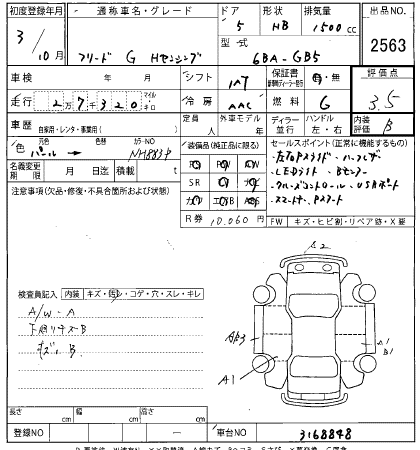 初度登録年月 通称車名・グレード ドア 形状 排気量 出品NO.
3/10月 フリード G Hセンシング 5 HB 1500cc 2563
型式 6BA-GB5
車検 年 月 シフト IAT 保証書 評価点
走行 27320 マイル キロ 冷房 AAC 燃料 G 3.5
車歴 自家用・レンタ・事業用( ) 定員 人 外車モデル 年 ディーラー 並行 ハンドル 左・右 内装評価 B
色 元色 パール → 色替 カラーNO NH883P
装備品(純正品に限る) セールスポイント(正常に機能するもの)
PS PW
SR
ナビ エアB
・左右Pスライド ・ハーフレザー
・LEDライト
・クルーズコントロール ・USBポート
・スマートキー
名義変更期限 月 日迄 積載 t
注意事項(欠品・修復・不具合箇所および状態)
R券 10,060円 FW キズ・ヒビ割・リペア跡・X要
A2
検査員記入 内装 キズ・汚レ・コゲ・穴・スレ・キレ
A/W・A
下廻りキズ・B
B
A1
A1
B1
長さ cm 幅 cm 高さ cm
登録NO ー 車台NO 3168848